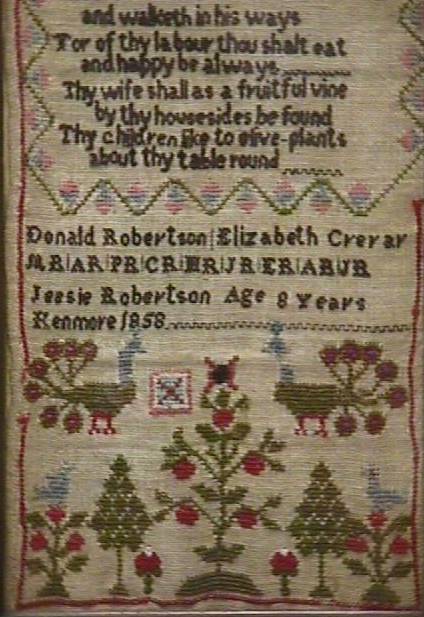 and walketh in his ways
For of thy labour thou shalt eat
and happy be always
Thy wife shall as a fruitful vine
by thy house sides be found
Thy children like to olive-plants
about thy table round
Donald Robertson Elizabeth Crerar
MR AR PR CR HR JR ER AR JR
Jessie Robertson Age 8 Years
Kenmore 1858